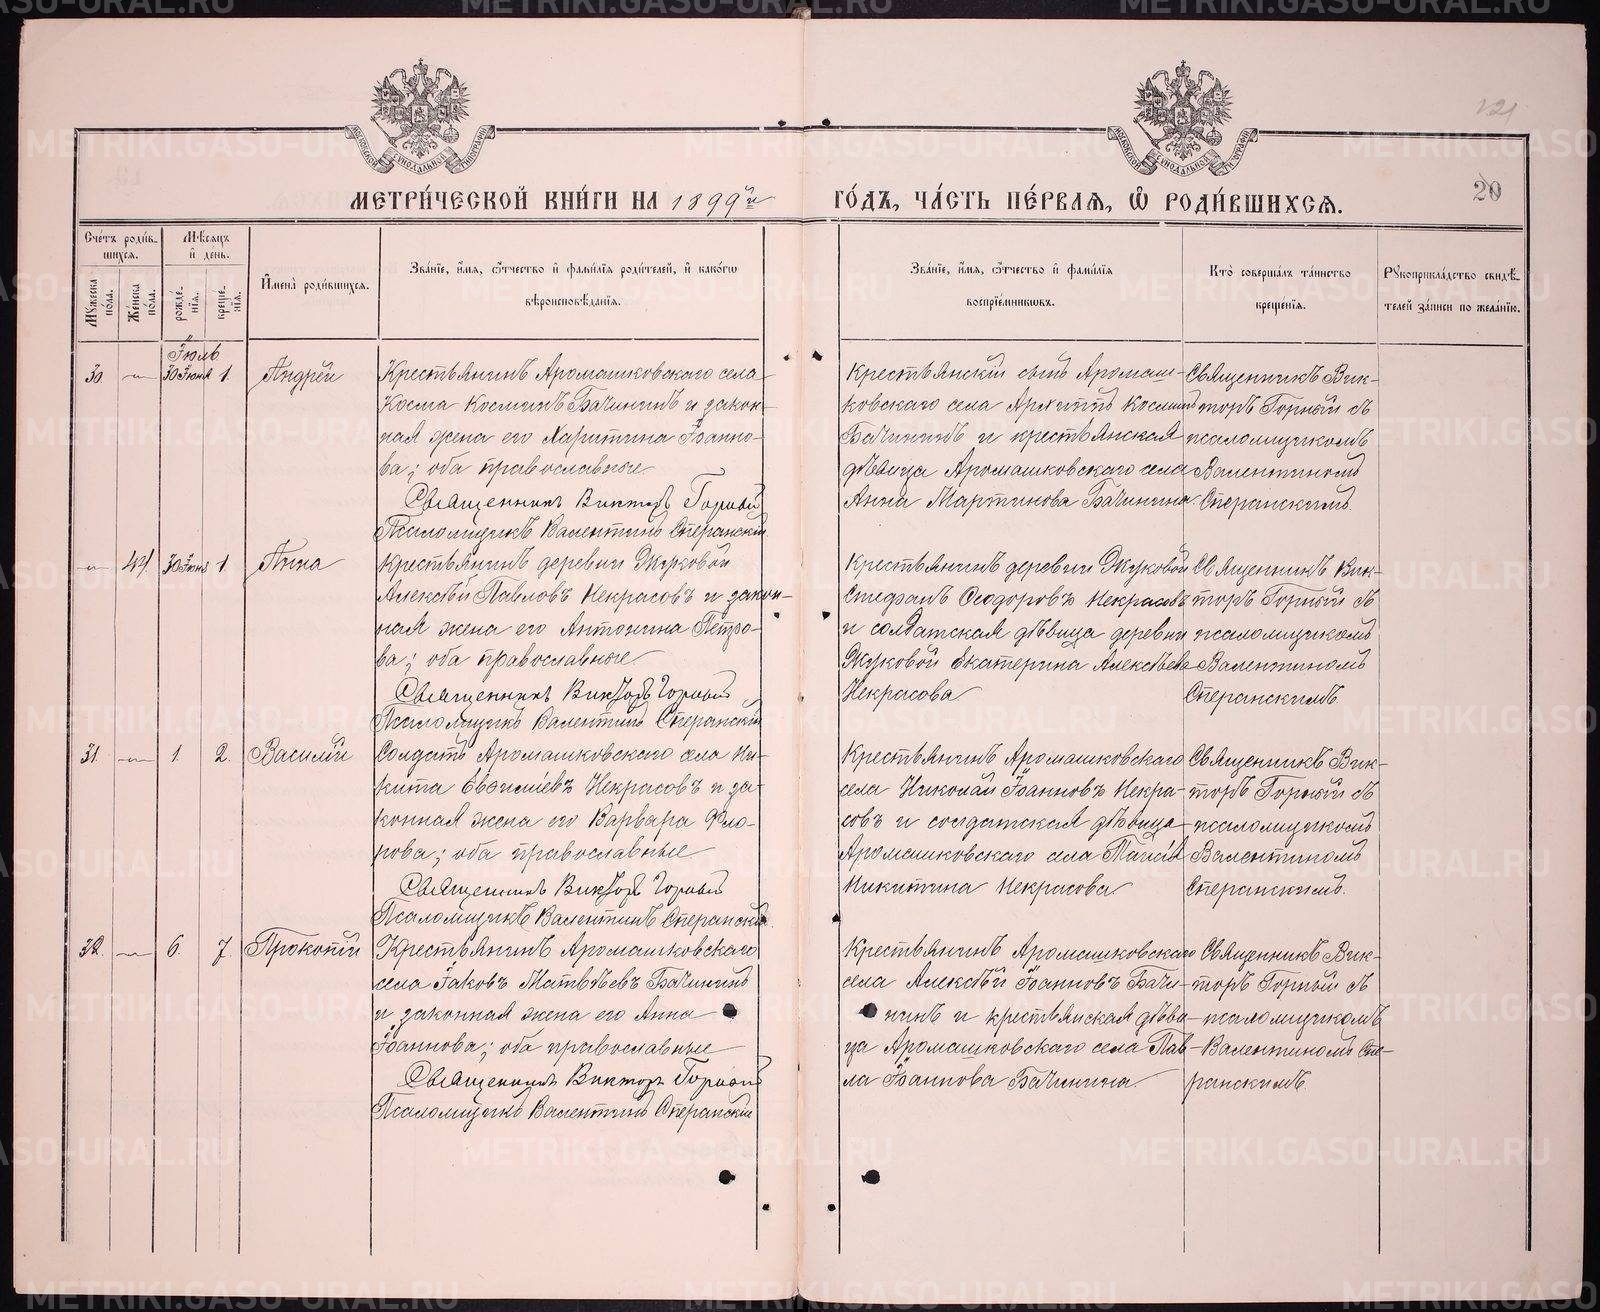 МЕТРИ́ЧЕСКОЙ КНИ́ГИ НА 1899й ГО́ДЪ, ЧА́СТЬ ПЕ́РВАѦ, Ѡ҆ РОДИ́ВШИХСѦ.
20
Сче́тъ роди́в-
шихсѧ.
Мѣ́сѧцъ
и҆ де́нь.
Мꙋ́жеска
по́ла.
Же́нска
по́ла.
рожде́-
нїѧ.
креще́-
нїѧ.
И҆мена̀ роди́вшихсѧ.
Зва́нїе, и҆́мѧ, ѻ҆́тчество и҆ фамилїѧ роди́телей, и҆ како́гѡ
вѣроисповѣ́данїѧ.
Зва́нїе, и҆́мѧ, ѻ҆́тчество и҆ фамилїѧ
воспрїе́мникѡвъ.
Кто̀ соверша́лъ та́инство
креще́нїѧ.
Рꙋкоприкла́дство свидѣ́-
телей за́писи по жела́нїю.
Іюль
30. — 30 Іюня 1. Андрей
Крестьянинъ Аромашковскаго села
Косма Косминъ Бачининъ и закон-
ная жена его Харитина Іоанно-
ва; оба православные
Священникъ Викторъ Горный
Псаломщикъ Валентинъ Сперанскій
Крестьянскій сынъ Аромаш-
ковскаго села Архиппъ Косминъ
Бачининъ и крестьянская
дѣвица Аромашковскаго села
Анна Мартинова Бачинина
Священникъ Вик-
торъ Горный съ
псаломщикомъ
Валентиномъ
Сперанскимъ.
— 44 30 Іюня 1. Анна
Крестьянинъ деревни Жуковой
Алексѣй Павловъ Некрасовъ и закон-
ная жена его Антонина Петро-
ва; оба православные
Священникъ Викторъ Горный
Псаломщикъ Валентинъ Сперанскій
Крестьянинъ деревни Жуковой
Стефанъ Ѳеодоровъ Некрасовъ
и солдатская дѣвица деревни
Жуковой Екатерина Алексѣева
Некрасова
Священникъ Вик-
торъ Горный съ
псаломщикомъ
Валентиномъ
Сперанскимъ.
31. — 1. 2. Василій
Солдатъ Аромашковскаго села Ни-
кита Евѳиміевъ Некрасовъ и за-
конная жена его Варвара Фло-
рова; оба православные
Священникъ Викторъ Горный
Псаломщикъ Валентинъ Сперанскій
Крестьянинъ Аромашковскаго
села Николай Іоанновъ Некра-
совъ и солдатская дѣвица
Аромашковскаго села
Никитина Некрасова
Священникъ Вик-
торъ Горный съ
псаломщикомъ
Валентиномъ
Сперанскимъ.
32. — 6. 7. Прокопій
Крестьянинъ Аромашковскаго
села Іаковъ Матвѣевъ Бачининъ
и законная жена его Анна
Іоаннова; оба православные
Священникъ Викторъ Горный
Псаломщикъ Валентинъ Сперанскій
Крестьянинъ Аромашковскаго
села Алексѣй Іоанновъ Бачи-
нинъ и крестьянская дѣви-
ца Аромашковскаго села Пав-
ла Іоаннова Бачинина.
Священникъ Вик-
торъ Горный съ
псаломщикомъ
Валентиномъ Спе-
ранскимъ.
METRIKI.GASO-URAL.RU